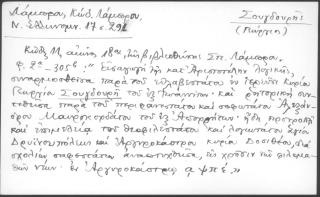 Λάμπρου, Κώδ. Λάμπρου,
Ν. Ἑλληνομν. 17 σ. 296
Σουγδουρῆς
(Γεώργιος)
Κώδιξ 11, αἰών. 18ος, τῆς βιβλιοθήκης Σπ. Λάμπρου.
φ. 2α - 305β. „ Εἰσαγωγὴ τῆς καὶ Ἀριστοτέλην λογικῆς,
συναρμοσθεῖσα παρὰ τοῦ εὐλαβεστάτου ἐν ἱερεῦσι κυρίου
Γεωργίου Σουγδουρῆ τοῦ ἐξ Ἰωαννίνων· καὶ ῥητορικὴ συν-
τεθεῖσα παρὰ τοῦ περιφανεστάτου καὶ σοφωτάτου Ἀλεξάν-
δρου Μαυροκορδάτου τοῦ ἐξ Ἀπορρήτων· ἤδη προτροπῇ
καὶ ἐπιμελείᾳ τοῦ θεοφιλεστάτου καὶ λογιωτάτου ἁγίου
Δρυϊνουπόλεως καὶ Ἀργυροκάστρου κυρίου Δοσιθέου, διὰ
σχολίων σαφεστάτη ἀναπτυχθεῖσα, εἰς χρῆσιν τῶν φιλομα-
θῶν νέων. ἐν Ἀργυροκάστρῳ αψπέ."